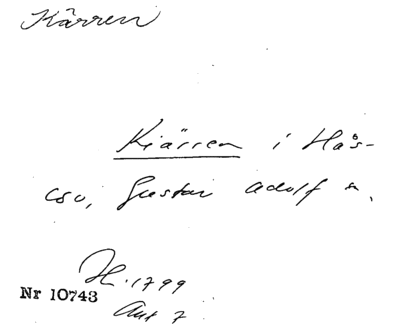 Kärren
Kiärren i Hås-
cso, Gustav Adolf s.
H. 1799
Nr 10743
Akt 7